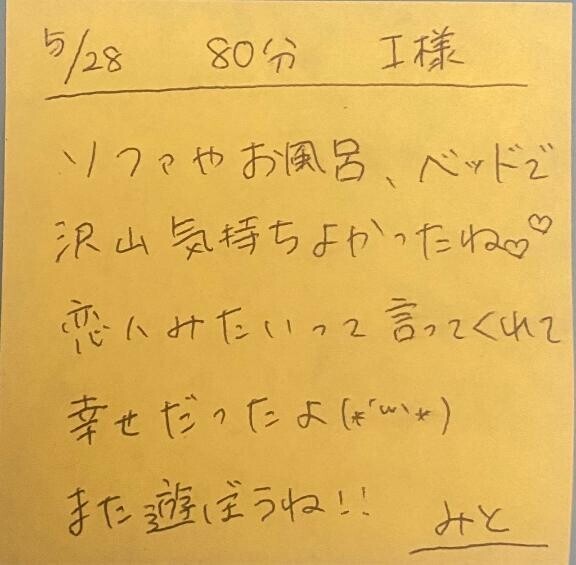 5/28 80分 I様
ソファやお風呂、ベッドで
沢山気持ちよかったね♡♡
恋人みたいって言ってくれて
幸せだったよ(*´ω`*)
また遊ぼうね!!
みと